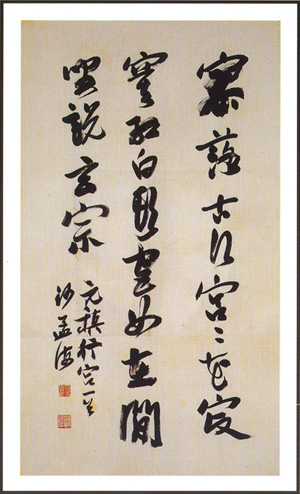 寥落古行宮〻花寂
寞紅白頭宮女在閒
坐説玄宗
元稹行宮一首
沙孟海